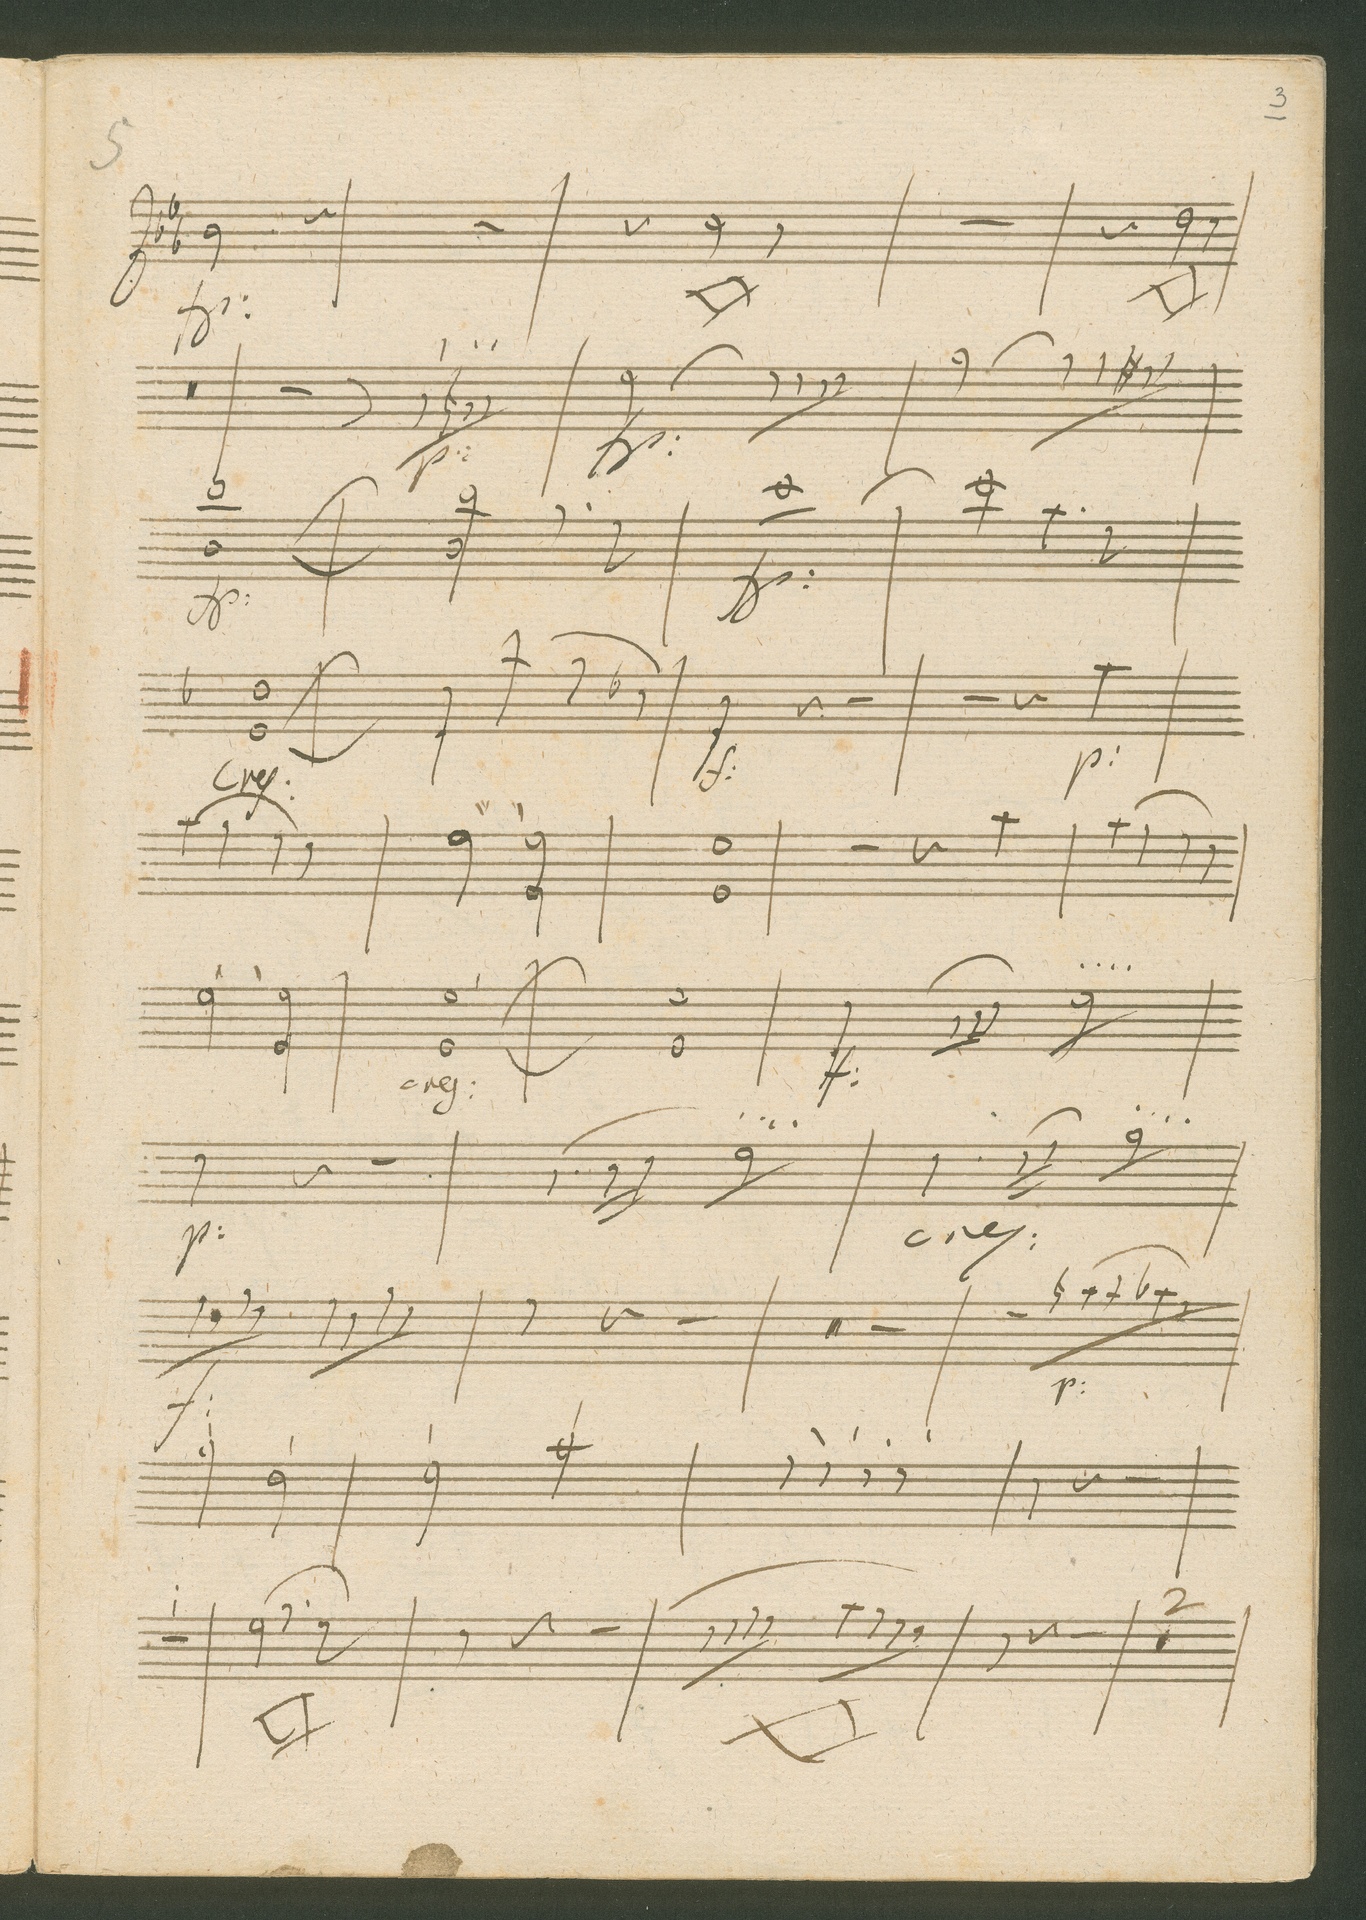 3
5
fp:
p:
fp:
fp:
fp:
cres:
f:
p:
cres:
f:
p:
cres:
f:
p:
2